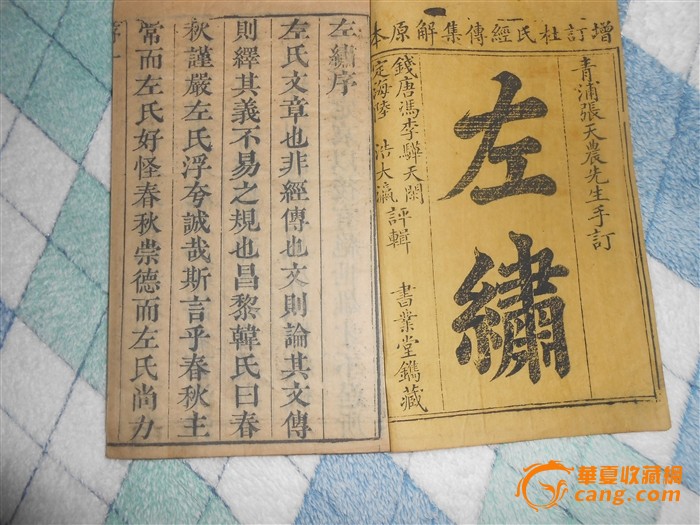 增訂杜氏經傳集解原本
青浦張天農先生手訂
左繡
錢唐馮李驊天閑
定海陸浩大瀛
評輯
書業堂鐫藏
左繡序
左氏文章也非經傳也文則論其文傳
則繹其義不易之規也昌黎韓氏曰春
秋謹嚴左氏浮夸誠哉斯言乎春秋主
常而左氏好怪春秋崇德而左氏尚力
序
一
華夏收藏網
cang.com